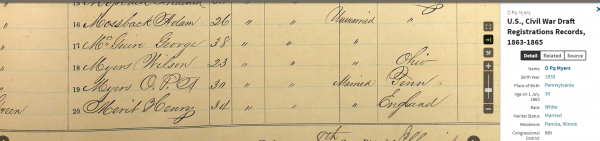 16 Mosback Adam 26 " " Unmarried "
17 McGuire George 38 " " " "
18 Myers Wilson 23 " " " Ohio
19 Myers O.P.Q 30 " " Married Penn
20 Merit Henry 34 " " " England
O Pq Myers
U.S., Civil War Draft Registrations Records, 1863-1865
Detail Related Source
Name O Pq Myers
Birth Year 1833
Place of Birth Pennsylvania
Age on 1 July 1863 30
Race White
Marital Status Married
Residence Panola, Illinois
Congressional District 8th